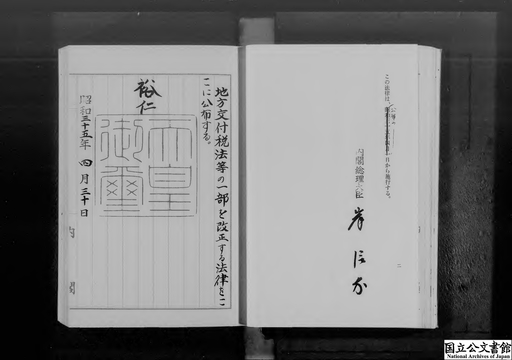 この法律は、
から施行する。
内閣総理大臣
岸信介
二
地方交付税法等の一部を改正する法律をこ
こに公布する。
裕仁
天皇
御璽
昭和三十五年四月三十日
内閣
国立公文書館
National Archives of Japan